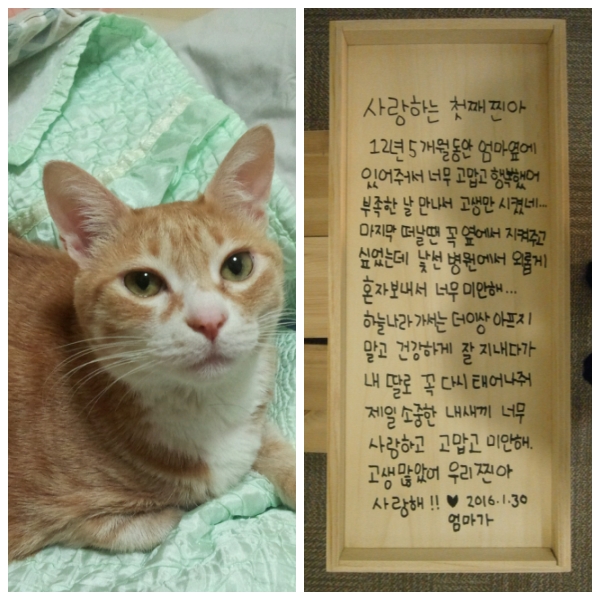 사랑하는 첫째찐아
12년 5개월동안 엄마옆에
있어주어서 너무 고맙고 행복했어
부족한 날 만나서 고생만 시켰네...
마지막 떠날땐 꼭 옆에서 지켜주고
싶었는데 낯선 병원에서 외롭게
혼자보내서 너무 미안해...
하늘나라 가서는 더이상 아프지
말고 건강하게 잘 지내다가
내 딸로 꼭 다시 태어나줘
제일 소중한 내새끼 너무
사랑하고 고맙고 미안해.
고생많았어 우리찐아
사랑해!! ♥ 2016.1.30
엄마가